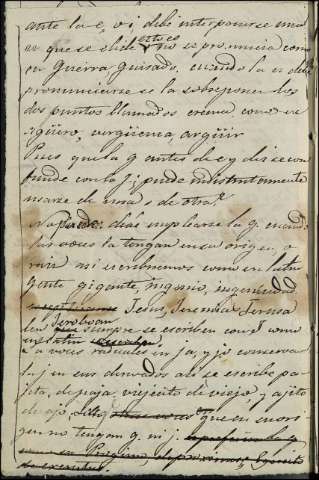 ante la e, o i debe interponerse una
u que se elide entonces y no se pronuncia como
en Guerra Guisado, cuando la u debe
pronunciarse se la sobreponen los
dos puntos llamados crema como en
güiro, vergüenza, argüir
Pues que la g antes de e y de i se con
funde con la j; puede indistintamente
usarse de una o de otra
No puede: debe emplearse la g cuando
las voces la tengan en su origen, o
raiz asi escribimos como en latin
gente gigante, ingenio, ingeniedad
Jesus, Jeremias Jerusa
len Jeroboan siempre se escriben con J como
voces radicales en ja, y jo conservan
la j en sus derivados asi se escribe pa
jita, de paja, viejecito de viejo, y ajito
de ajo, que en su ori
gen no tengan g. ni j.